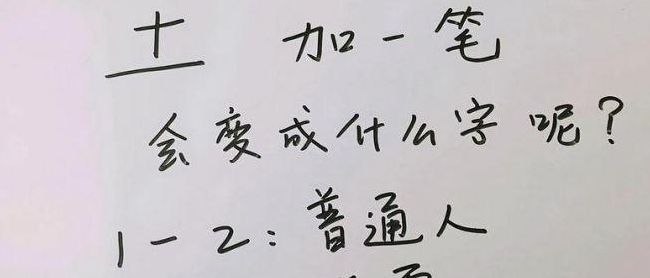 十 加一笔
会变成什么字呢?
1-2:普通人